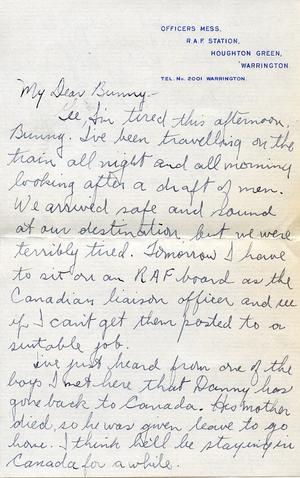 OFFICERS MESS,
R.A.F. STATION,
HOUGHTON GREEN,
WARRINGTON.
TEL. No. 2001 WARRINGTON.
My Dear Bunny-
Gee I'm tired this afternoon,
Bunny. I've been travelling on the
train all night and all morning
looking after a draft of men.
We arrived safe and sound
at our destination, but we were
terribly tired. Tomorrow I have
to sit on an RAF board as the
Canadian liaison officer and see
if I can't get them posted to a
suitable job.
I've just heard from one of the
boys I met here that Danny has
gone back to Canada. His mother
died, so he was given leave to go
home. I think he'll be staying in
Canada for a while.